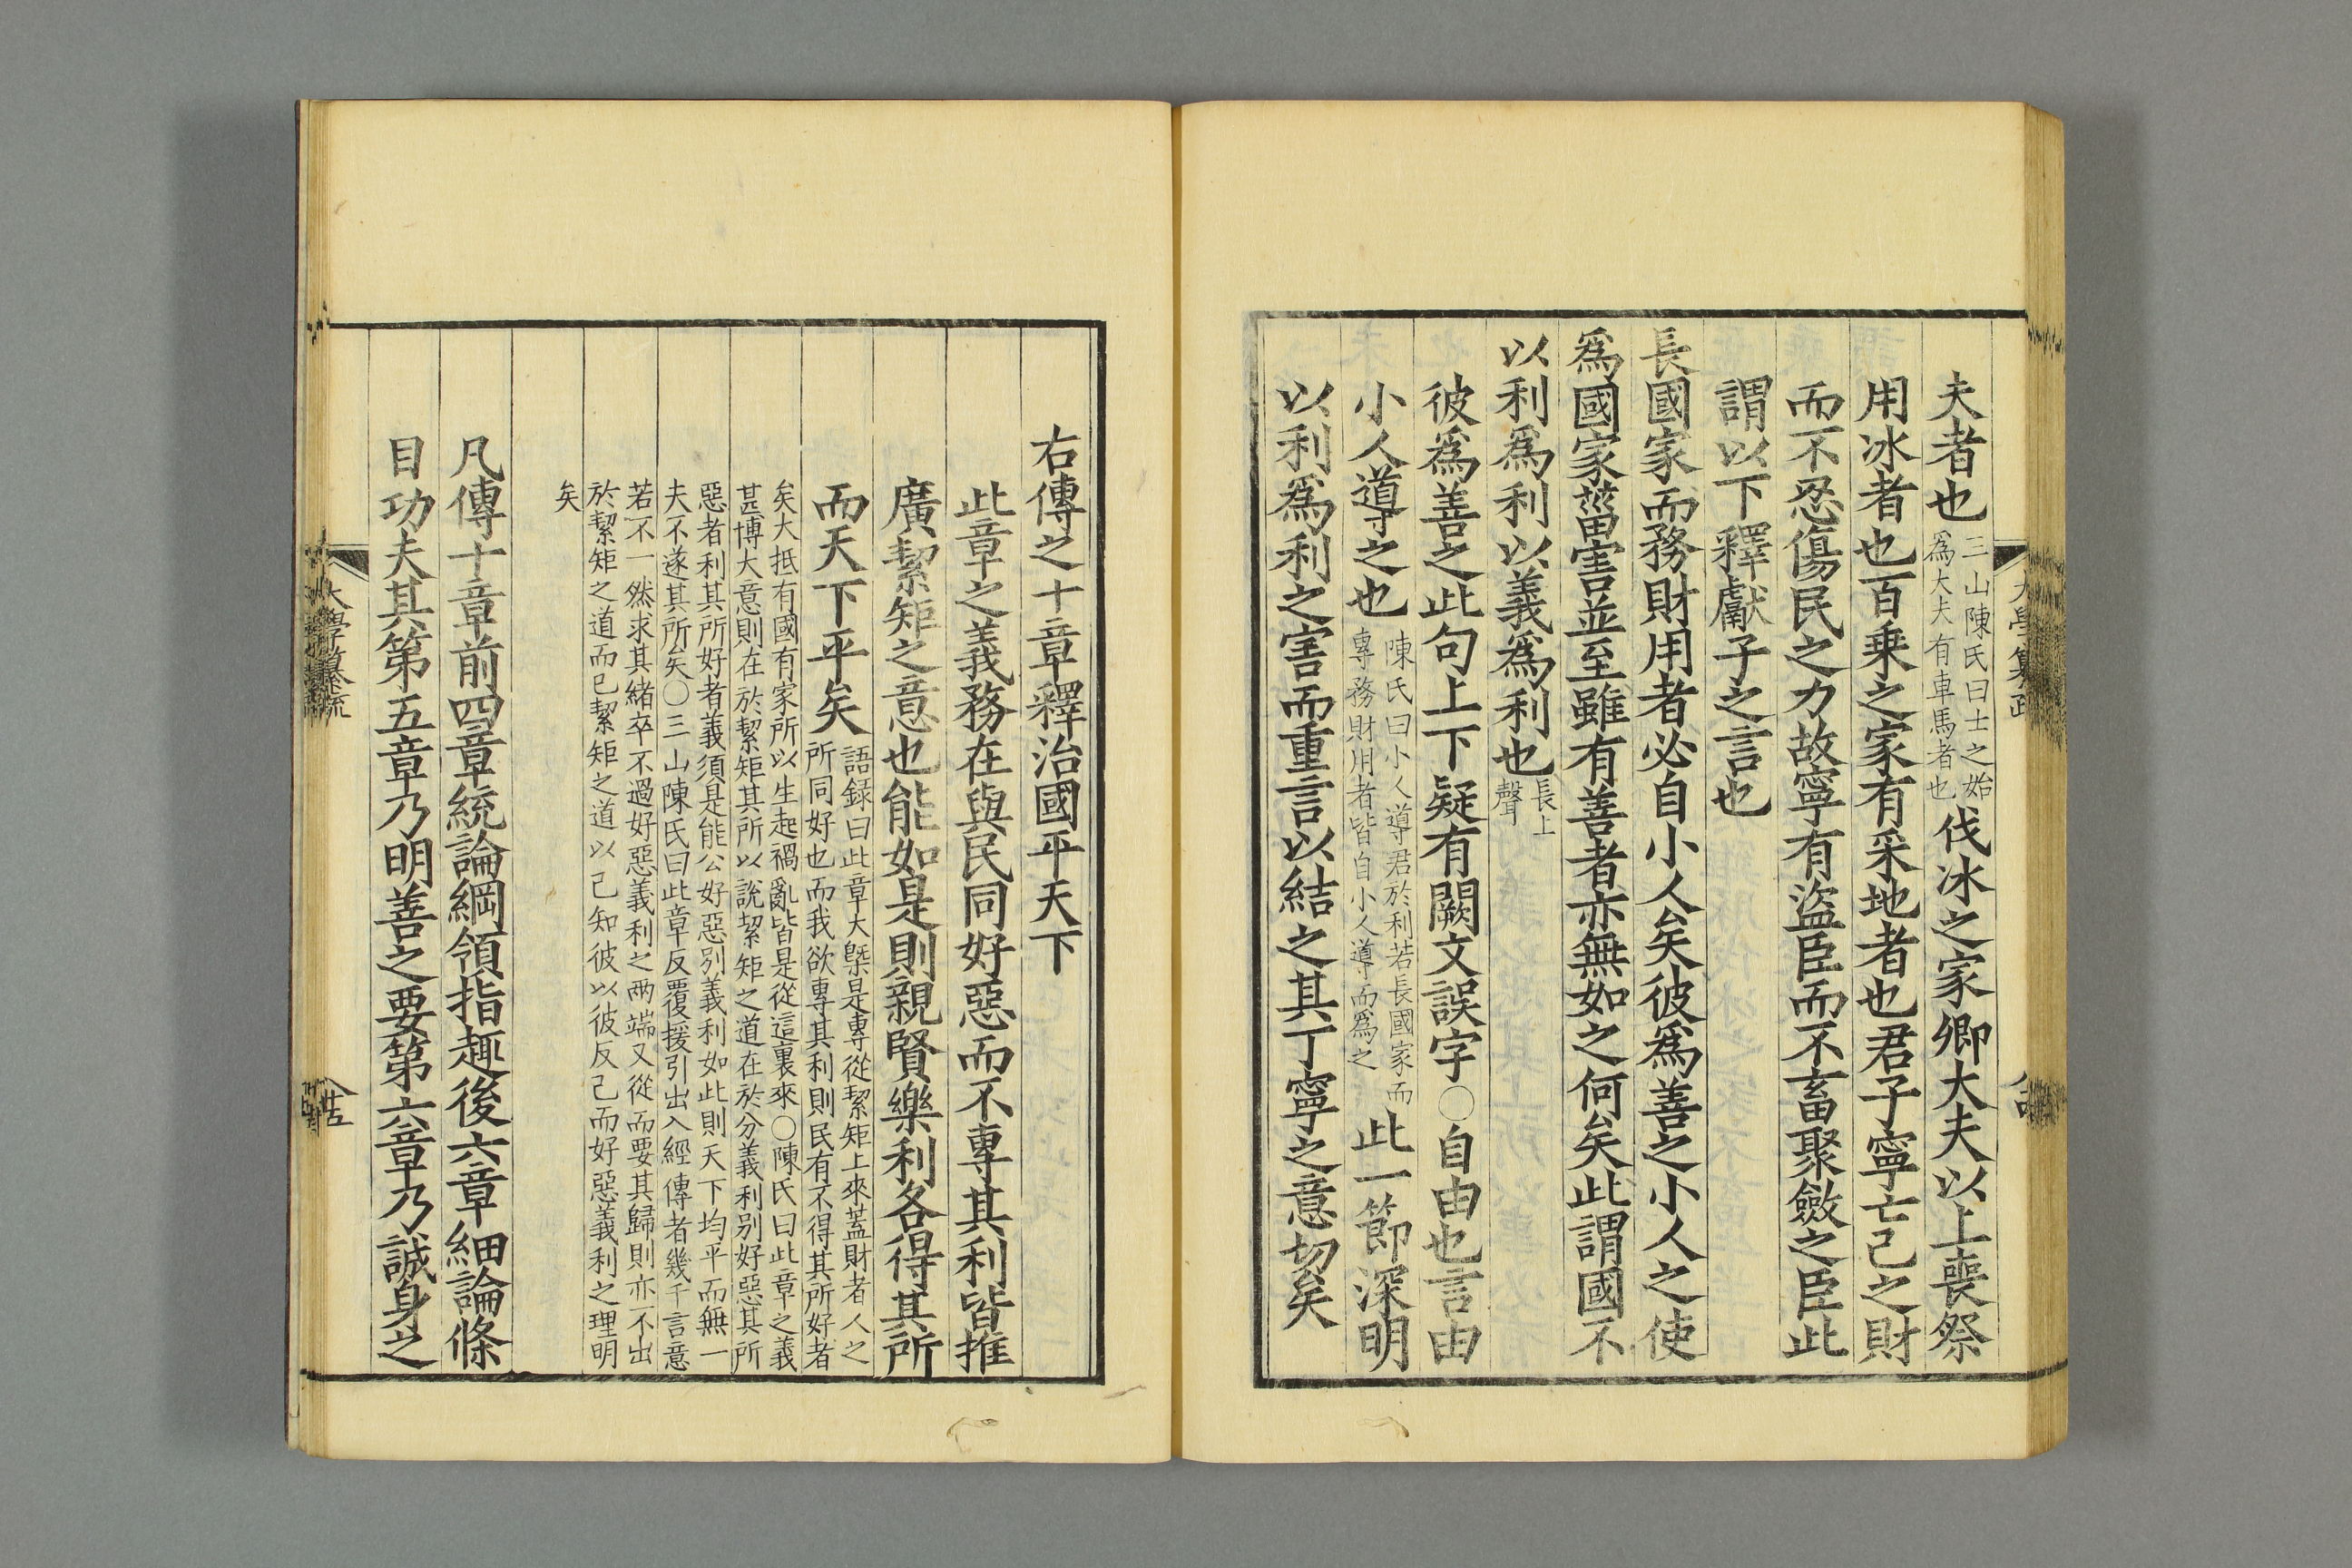 夫者也三山陳氏曰士之始爲大夫有車馬者也伐冰之家卿大夫以上喪祭
用冰者也百乗之家有采地者也君子寧亡己之財
而不忍傷民之力故寧有盜臣而不畜聚斂之臣此
謂以下釋獻子之言也
長國家而務財用者必自小人矣彼爲善之小人之使
爲國家菑害並至雖有善者亦無如之何矣此謂國不
以利爲利以義爲利也長上聲
彼爲善之此句上下疑有闕文誤字○自由也言由
小人導之也陳氏曰小人導君於利若長國家而專務財用者皆自小人導而爲之此一節深明
以利爲利之害而重言以結之其丁寧之意切矣
右傳之十章釋治國平天下
此章之義務在與民同好惡而不專其利皆推
廣絜矩之意也能如是則親賢樂利各得其所
而天下平矣語録曰此章大槩是專從絜矩上來蓋財者人之
所同好也而我欲專其利則民有不得其所好者
矣大抵有國有家所以生起禍亂皆是從這裏來○陳氏曰此章之義
甚博大意則在於絜矩其所以說絜矩之道在於分義利別好惡其所
惡者利其所好者義須是能公好惡別義利如此則天下均平而無一
夫不遂其所矣○三山陳氏曰此章反覆援引出入經傳者幾千言意
若不一然求其緒卒不過好惡義利之兩端又從而要其歸則亦不出
於絜矩之道而已絜矩之道以己知彼以彼反己而好惡義利之理明
矣
凡傳十章前四章統論綱領指趣後六章細論條
目功夫其第五章乃明善之要第六章乃誠身之
大學纂疏